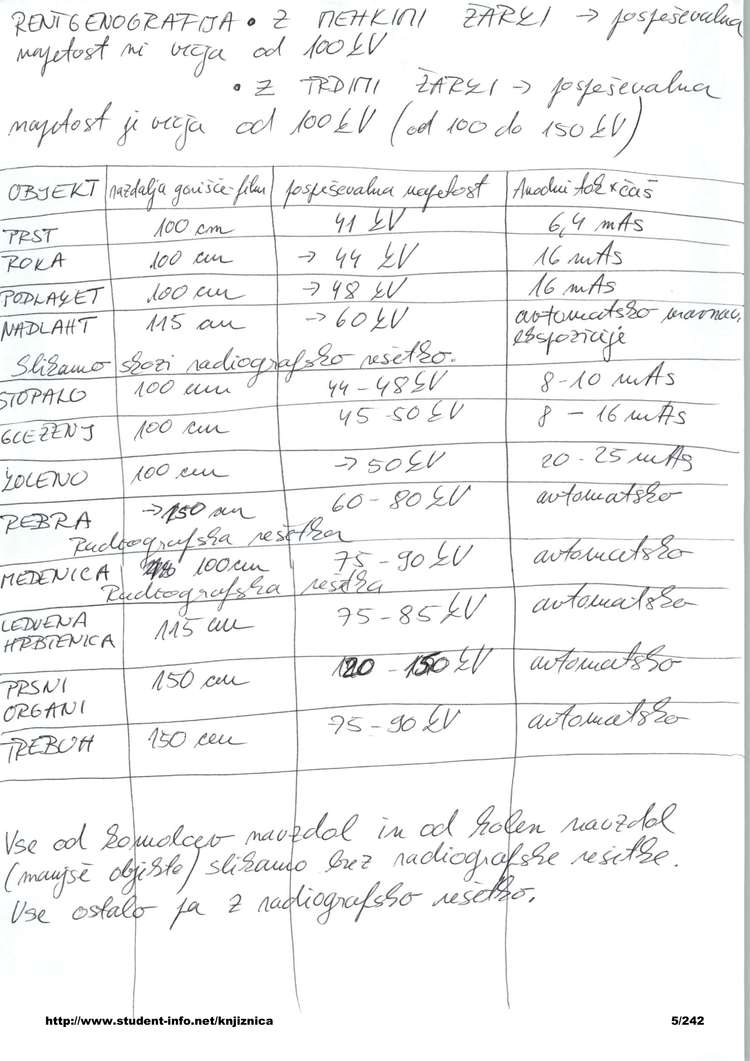 RENTGENOGRAFIJA • Z MEHKIMI ŽARKI → pospeševalna
napetost ni večja od 100 kV
• Z TRDIMI ŽARKI → pospeševalna
napetost je večja od 100 kV (od 100 do 150 kV)
OBJEKT razdalja gorišče-film pospeševalna napetost Anodni tok × čas
PRST 100 cm 41 kV 6,4 mAs
ROKA 100 cm → 44 kV 16 mAs
PODLAKET 100 cm → 48 kV 16 mAs
NADLAHT 115 cm → 60 kV avtomatsko uravnav.
ekspozicije
Slikamo skozi radiografsko rešetko.
STOPALO 100 cm 44 - 48 kV 8-10 mAs
GLEŽENJ 100 cm 45-50 kV 8 - 16 mAs
KOLENO 100 cm → 50 kV 20 - 25 mAs
REBRA → 150 cm 60 - 80 kV avtomatsko
Radiografska rešetka
MEDENICA 100 cm 75 - 90 kV avtomatsko
Radiografska rešetka
LEDVENA HRBTENICA 115 cm 75 - 85 kV avtomatsko
PRSNI ORGANI 150 cm 120 - 150 kV avtomatsko
TREBUH 150 cm 75 - 90 kV avtomatsko
Vse od komolcev navzdol in od kolen navzdol
(manjše objekte) slikamo brez radiografske rešetke.
Vse ostalo pa z radiografsko rešetko.
http://www.student-info.net/knjiznica 5/242